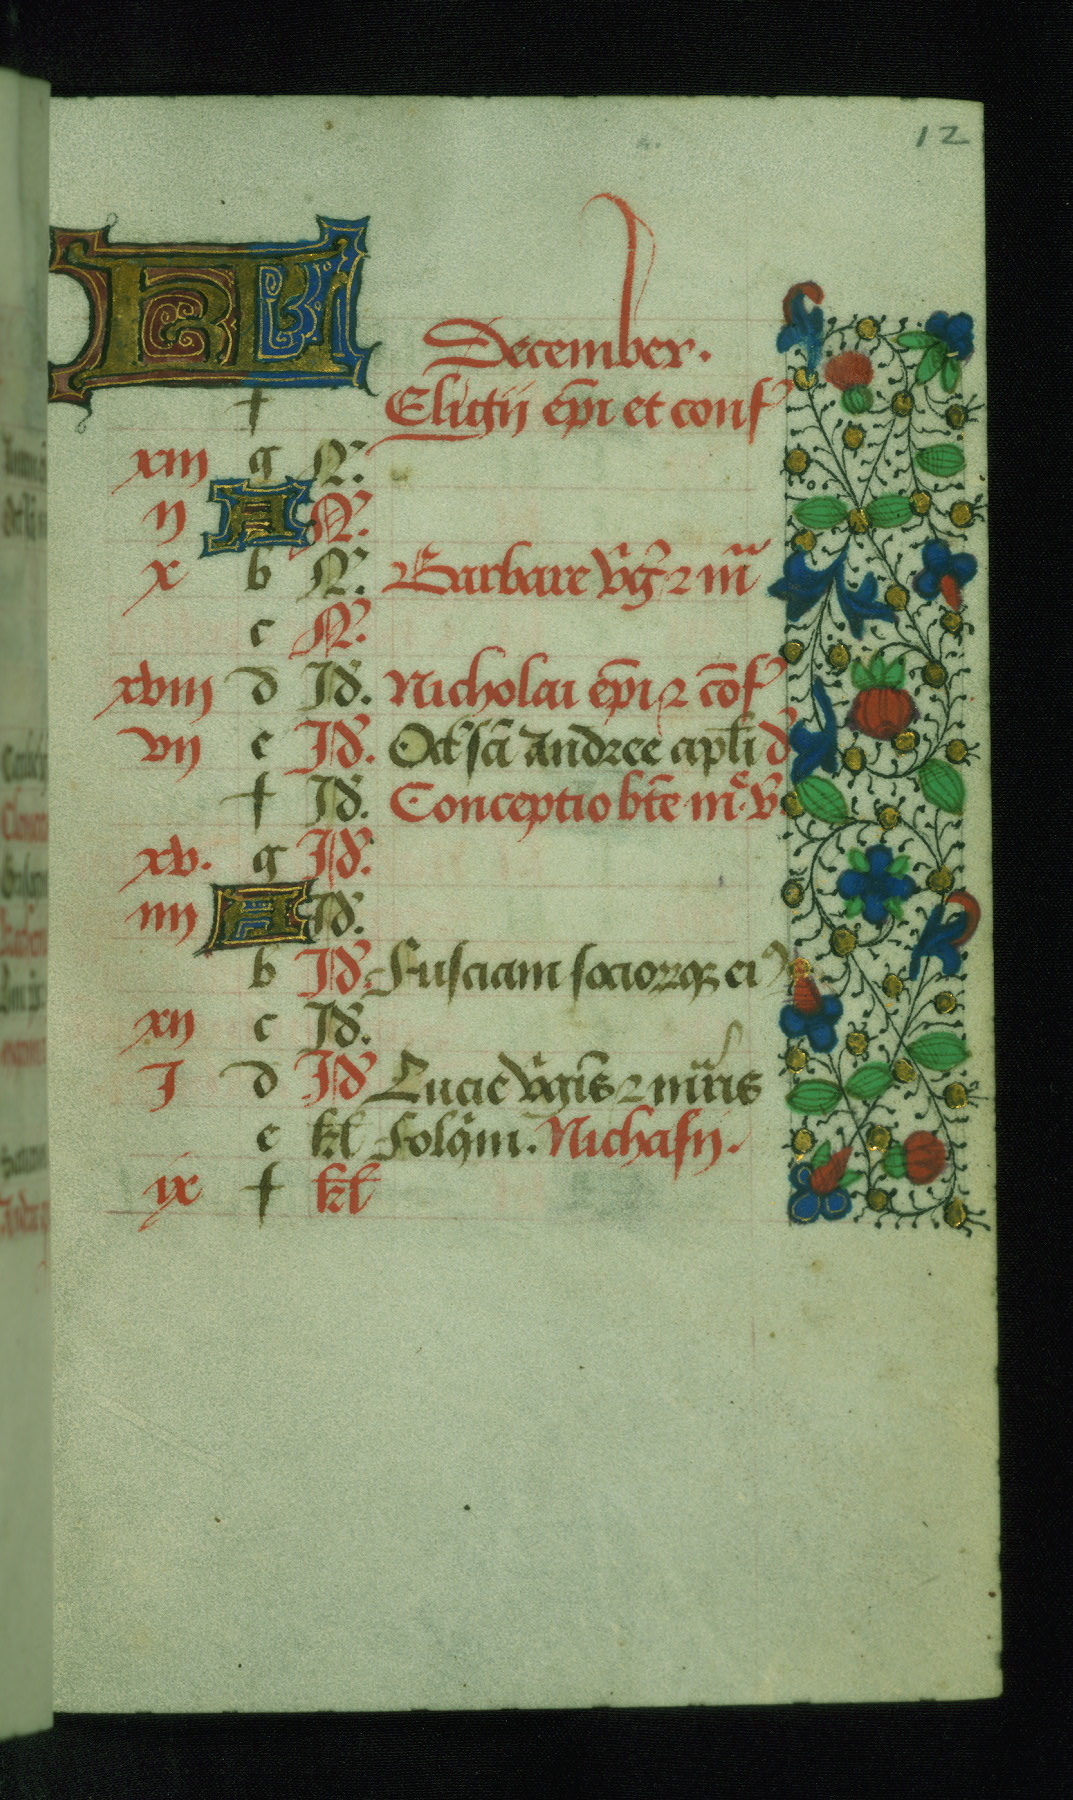 12
KL
December.
f Eligii ep̄i et conf
xiii g N.
ii A N.
x b N. Barbare v̄ḡ ⁊ m̄
c N.
xviii d Id. Nicholai ep̄i ⁊ cōf
vii e Id. Oct sc̄i andree apl̄i d
f Id. Conceptio bt̄e m̄ v.
xv. g Id.
iiii A Id.
b Id. Fusciani sociorqꝫ ei
xii c Id.
i d Id Lucie v̄gīs ⁊ m̄ris
e kl̄ Folqni. Nichasii.
ix f kl̄